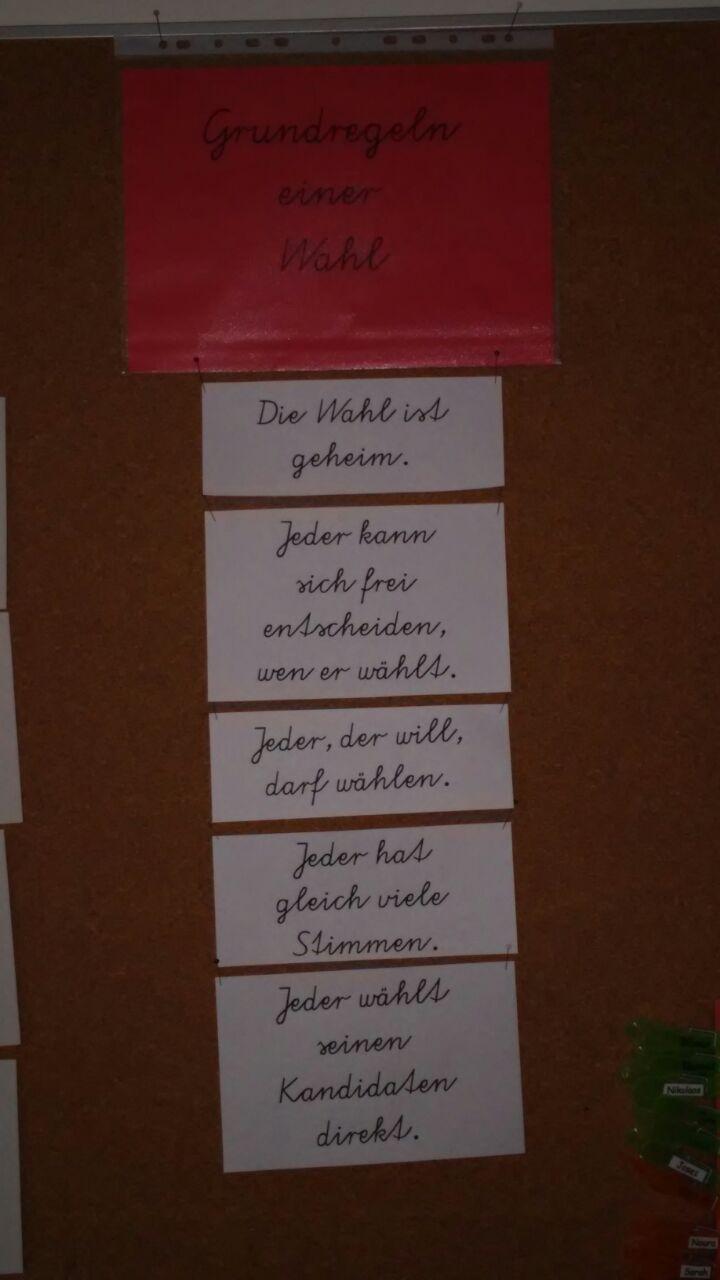 Grundregeln
einer
Wahl
Die Wahl ist
geheim.
Jeder kann
sich frei
entscheiden,
wen er wählt.
Jeder, der will,
darf wählen.
Jeder hat
gleich viele
Stimmen.
Jeder wählt
seinen
Kandidaten
direkt.
Nikolaos
Noura
Sarah